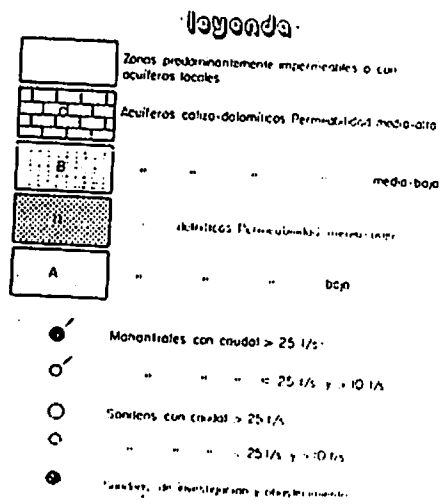 leyenda
Zonas predominantemente impermeables o con
acuíferos locales
Acuíferos calizo-dolomíticos Permeabilidad media-alta
B " " " " media-baja
detríticos Permeabilidad
A " " " baja
Manantiales con caudal > 25 l/s
" " " 25 l/s y > 10 l/s
Sondeos con caudal > 25 l/s
" " " < 25 l/s y > 10 l/s
de investigación y